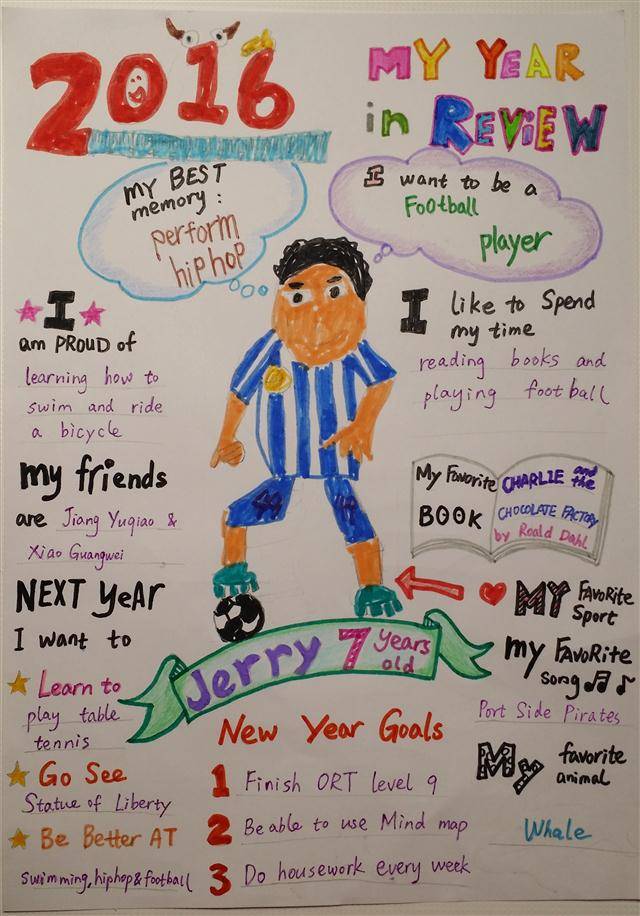 2016
MY YEAR
in REViEW
MY BEST
memory:
perform
hip hop
I want to be a
Football
player
I
am PROUD of
learning how to
swim and ride
a bicycle
I like to Spend
my time
reading books and
playing football
my friends
are Jiang Yuqiao &
Xiao Guangwei
My Favorite
BOOK
CHARLIE and
the
CHOCOLATE FACTORY
by Roald Dahl
NEXT YeAr
I want to
Learn to
play table
tennis
Go See
Statue of Liberty
Be Better AT
swimming, hiphop & football
MY FAVoRite
Sport
my FAvoRite
song
Port Side Pirates
My favorite
animal
Whale
Jerry 7 years
old
New Year Goals
1 Finish ORT level 9
2 Be able to use Mind map
3 Do housework every week